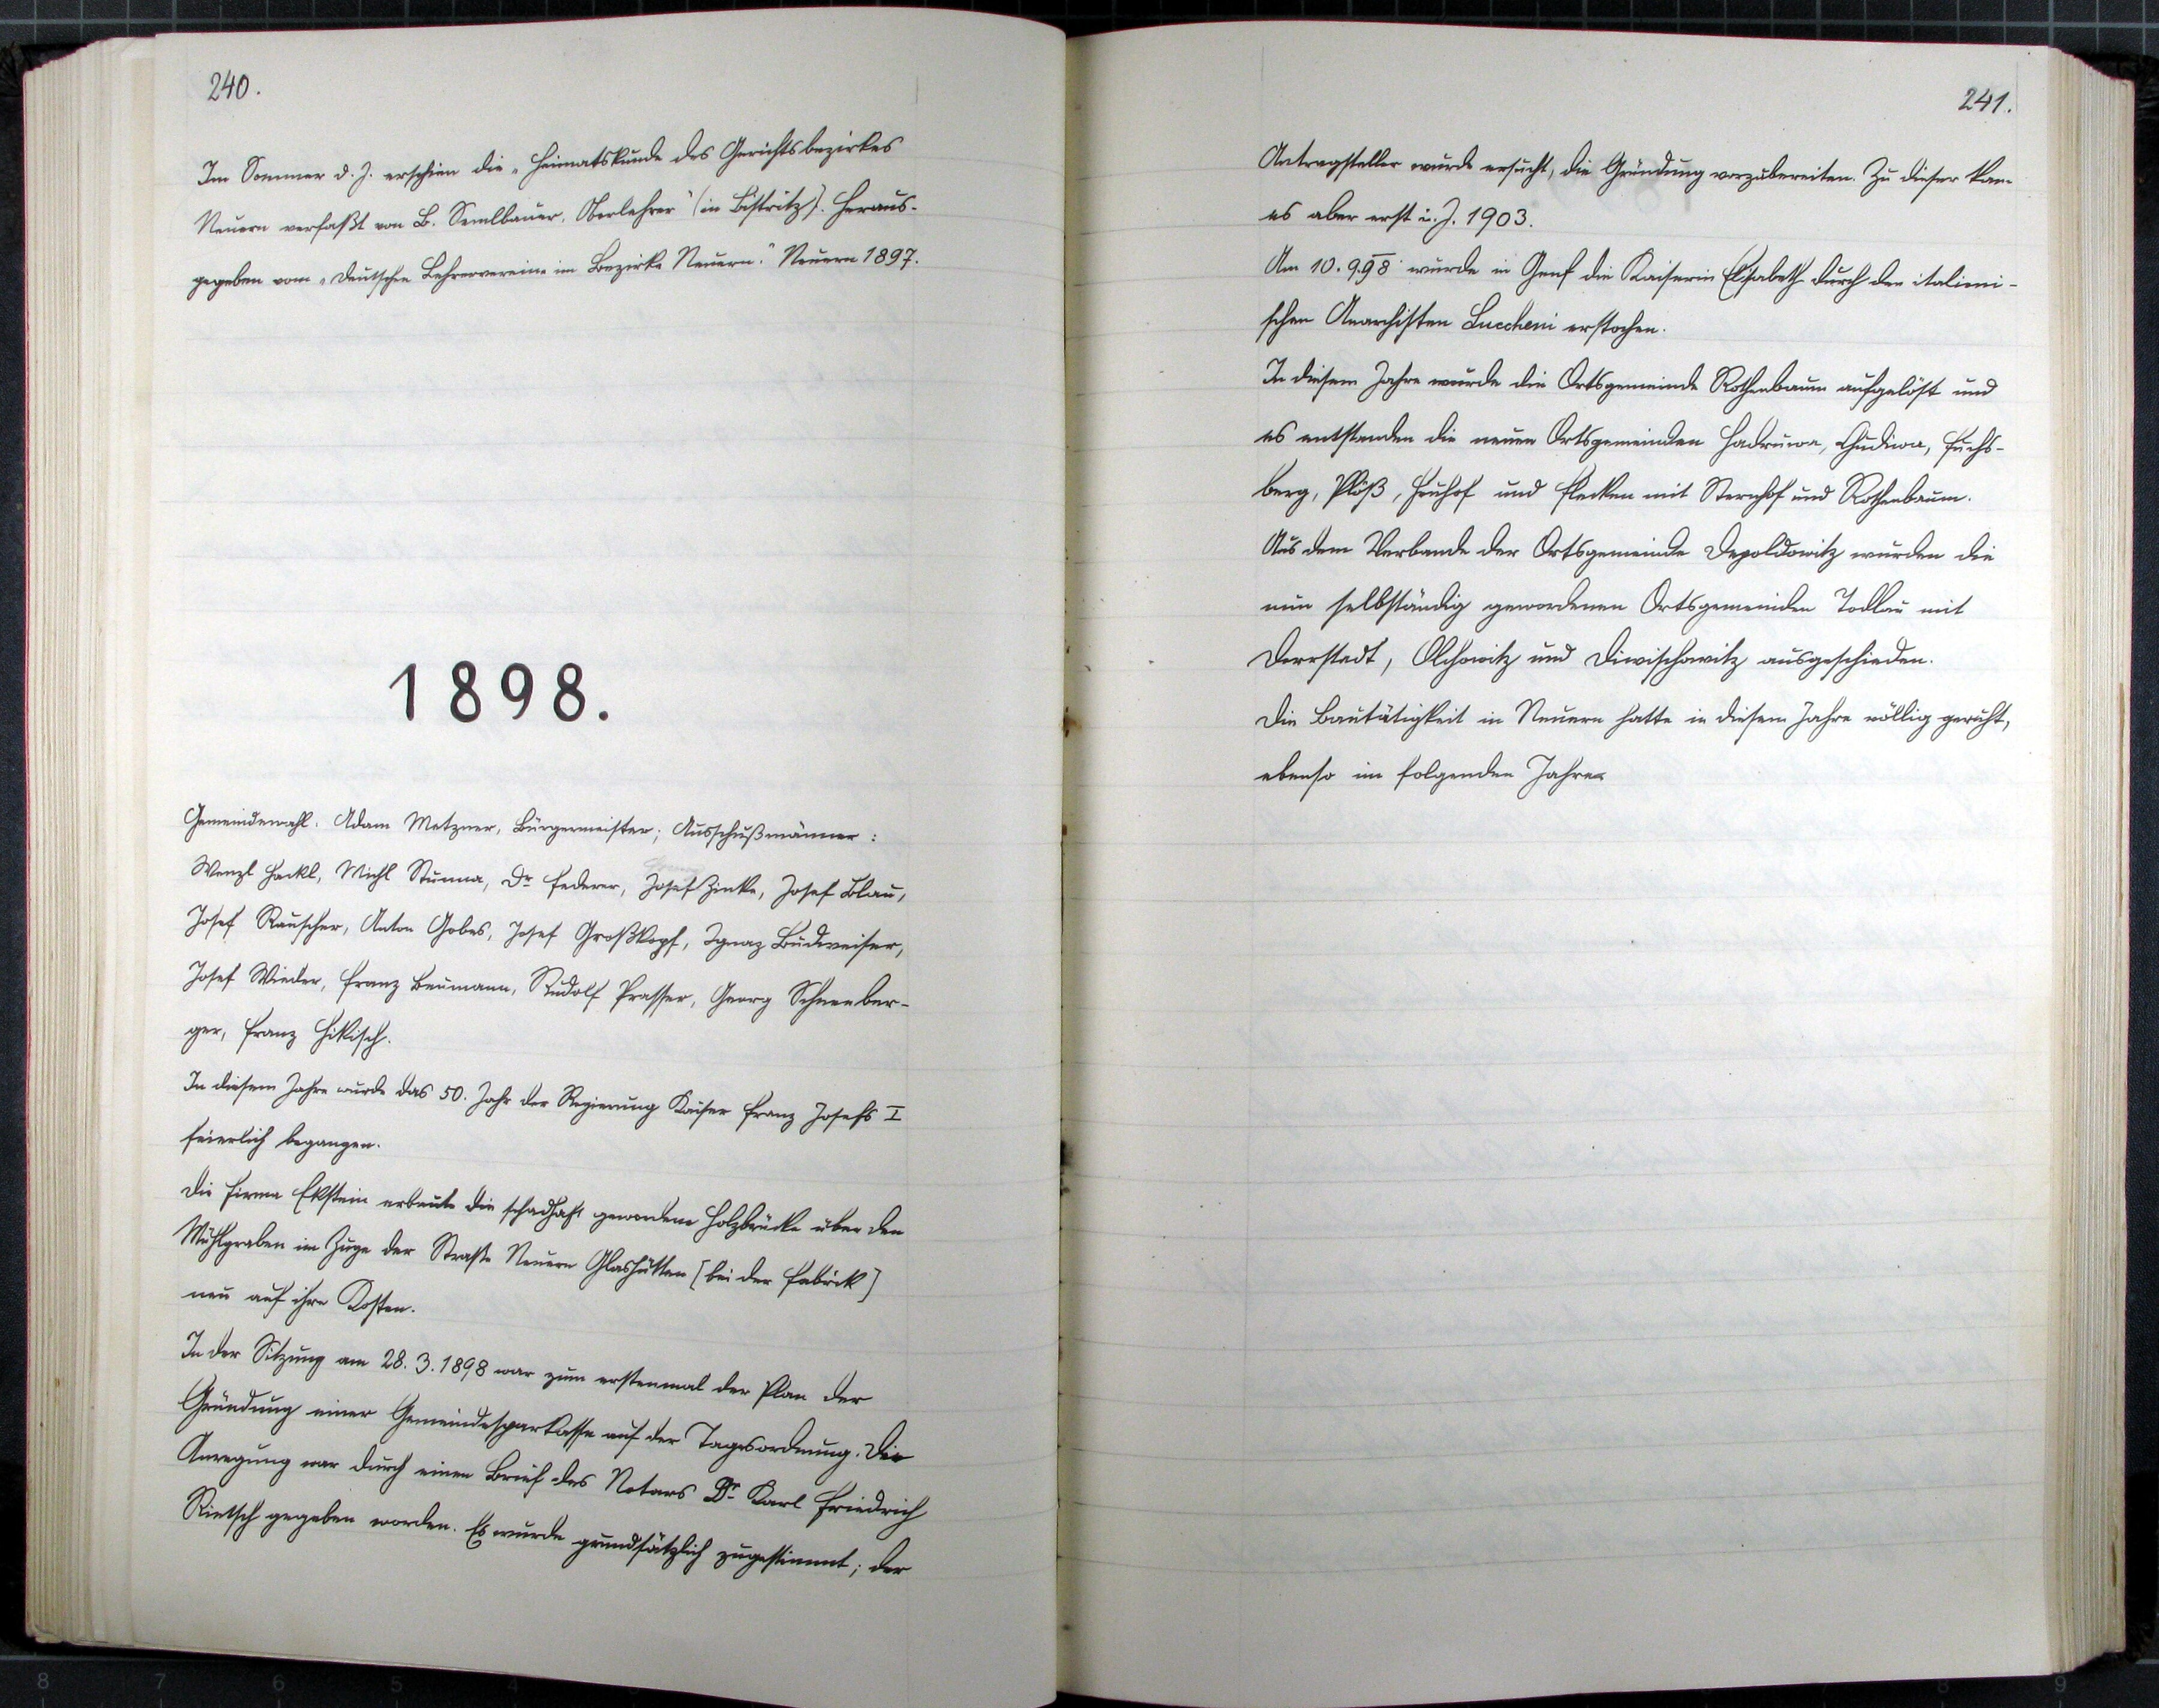 240.
Im Sommer d. J. erschien die „Heimatskunde des Gerichtsbezirkes
Neuern verfaßt von B. Semlbauer, Oberlehrer" (in Bistritz). Heraus-
gegeben vom „Deutschen Lehrervereine im Bezirke Neuern." Neuern 1897.
1898.
Gemeindewahl. Adam Metzner, Bürgermeister; Ausschußmänner:
Wenzl Hackl, Michl Stunna, Dr Federer, Josef Zinke, Josef Blau,
Josef Rauscher, Anton Gobes, Josef Großkopf, Ignaz Budweiser,
Josef Wieder, Franz Baumann, Rudolf Prasser, Georg Schneeber-
ger, Franz Hikisch.
In diesem Jahre wurde das 50. Jahr der Regierung Kaiser Franz Josefs I
feierlich begangen.
Die Firma Ekstein erbaute die schadhaft gewordene Holzbrücke über den
Mühlgraben im Zuge der Straße Neuern Glashütten [bei der Fabrik]
neu auf ihre Kosten.
In der Sitzung am 28. 3. 1898 war zum erstenmal der Plan der
Gründung einer Gemeindesparkasse auf der Tagesordnung. Die
Anregung war durch einen Brief des Notars Dr Karl Friedrich
Rietsch gegeben worden. Es wurde grundsätzlich zugestimmt; der
241.
Antragsteller wurde ersucht, die Gründung vorzubereiten. Zu dieser kam
es aber erst i. J. 1903.
Am 10. 9. 98 wurde in Genf die Kaiserin Elisabeth durch den italieni-
schen Anarchisten Luccheni erstochen.
In diesem Jahre wurde die Ortsgemeinde Rothenbaum aufgelöst und
es entstanden die neuen Ortsgemeinden Hadruwa, Chudiwa, Fuchs-
berg, Plöß, Heuhof und Flecken mit Sternhof und Rothenbaum.
Aus dem Verbande der Ortsgemeinde Depoldowitz wurden die
nun selbständig gewordenen Ortsgemeinden Todlau mit
Derrstadt, Olchowitz und Diwischowitz ausgeschieden.
Die Bautätigkeit in Neuern hatte in diesem Jahre völlig geruht,
ebenso im folgenden Jahre.